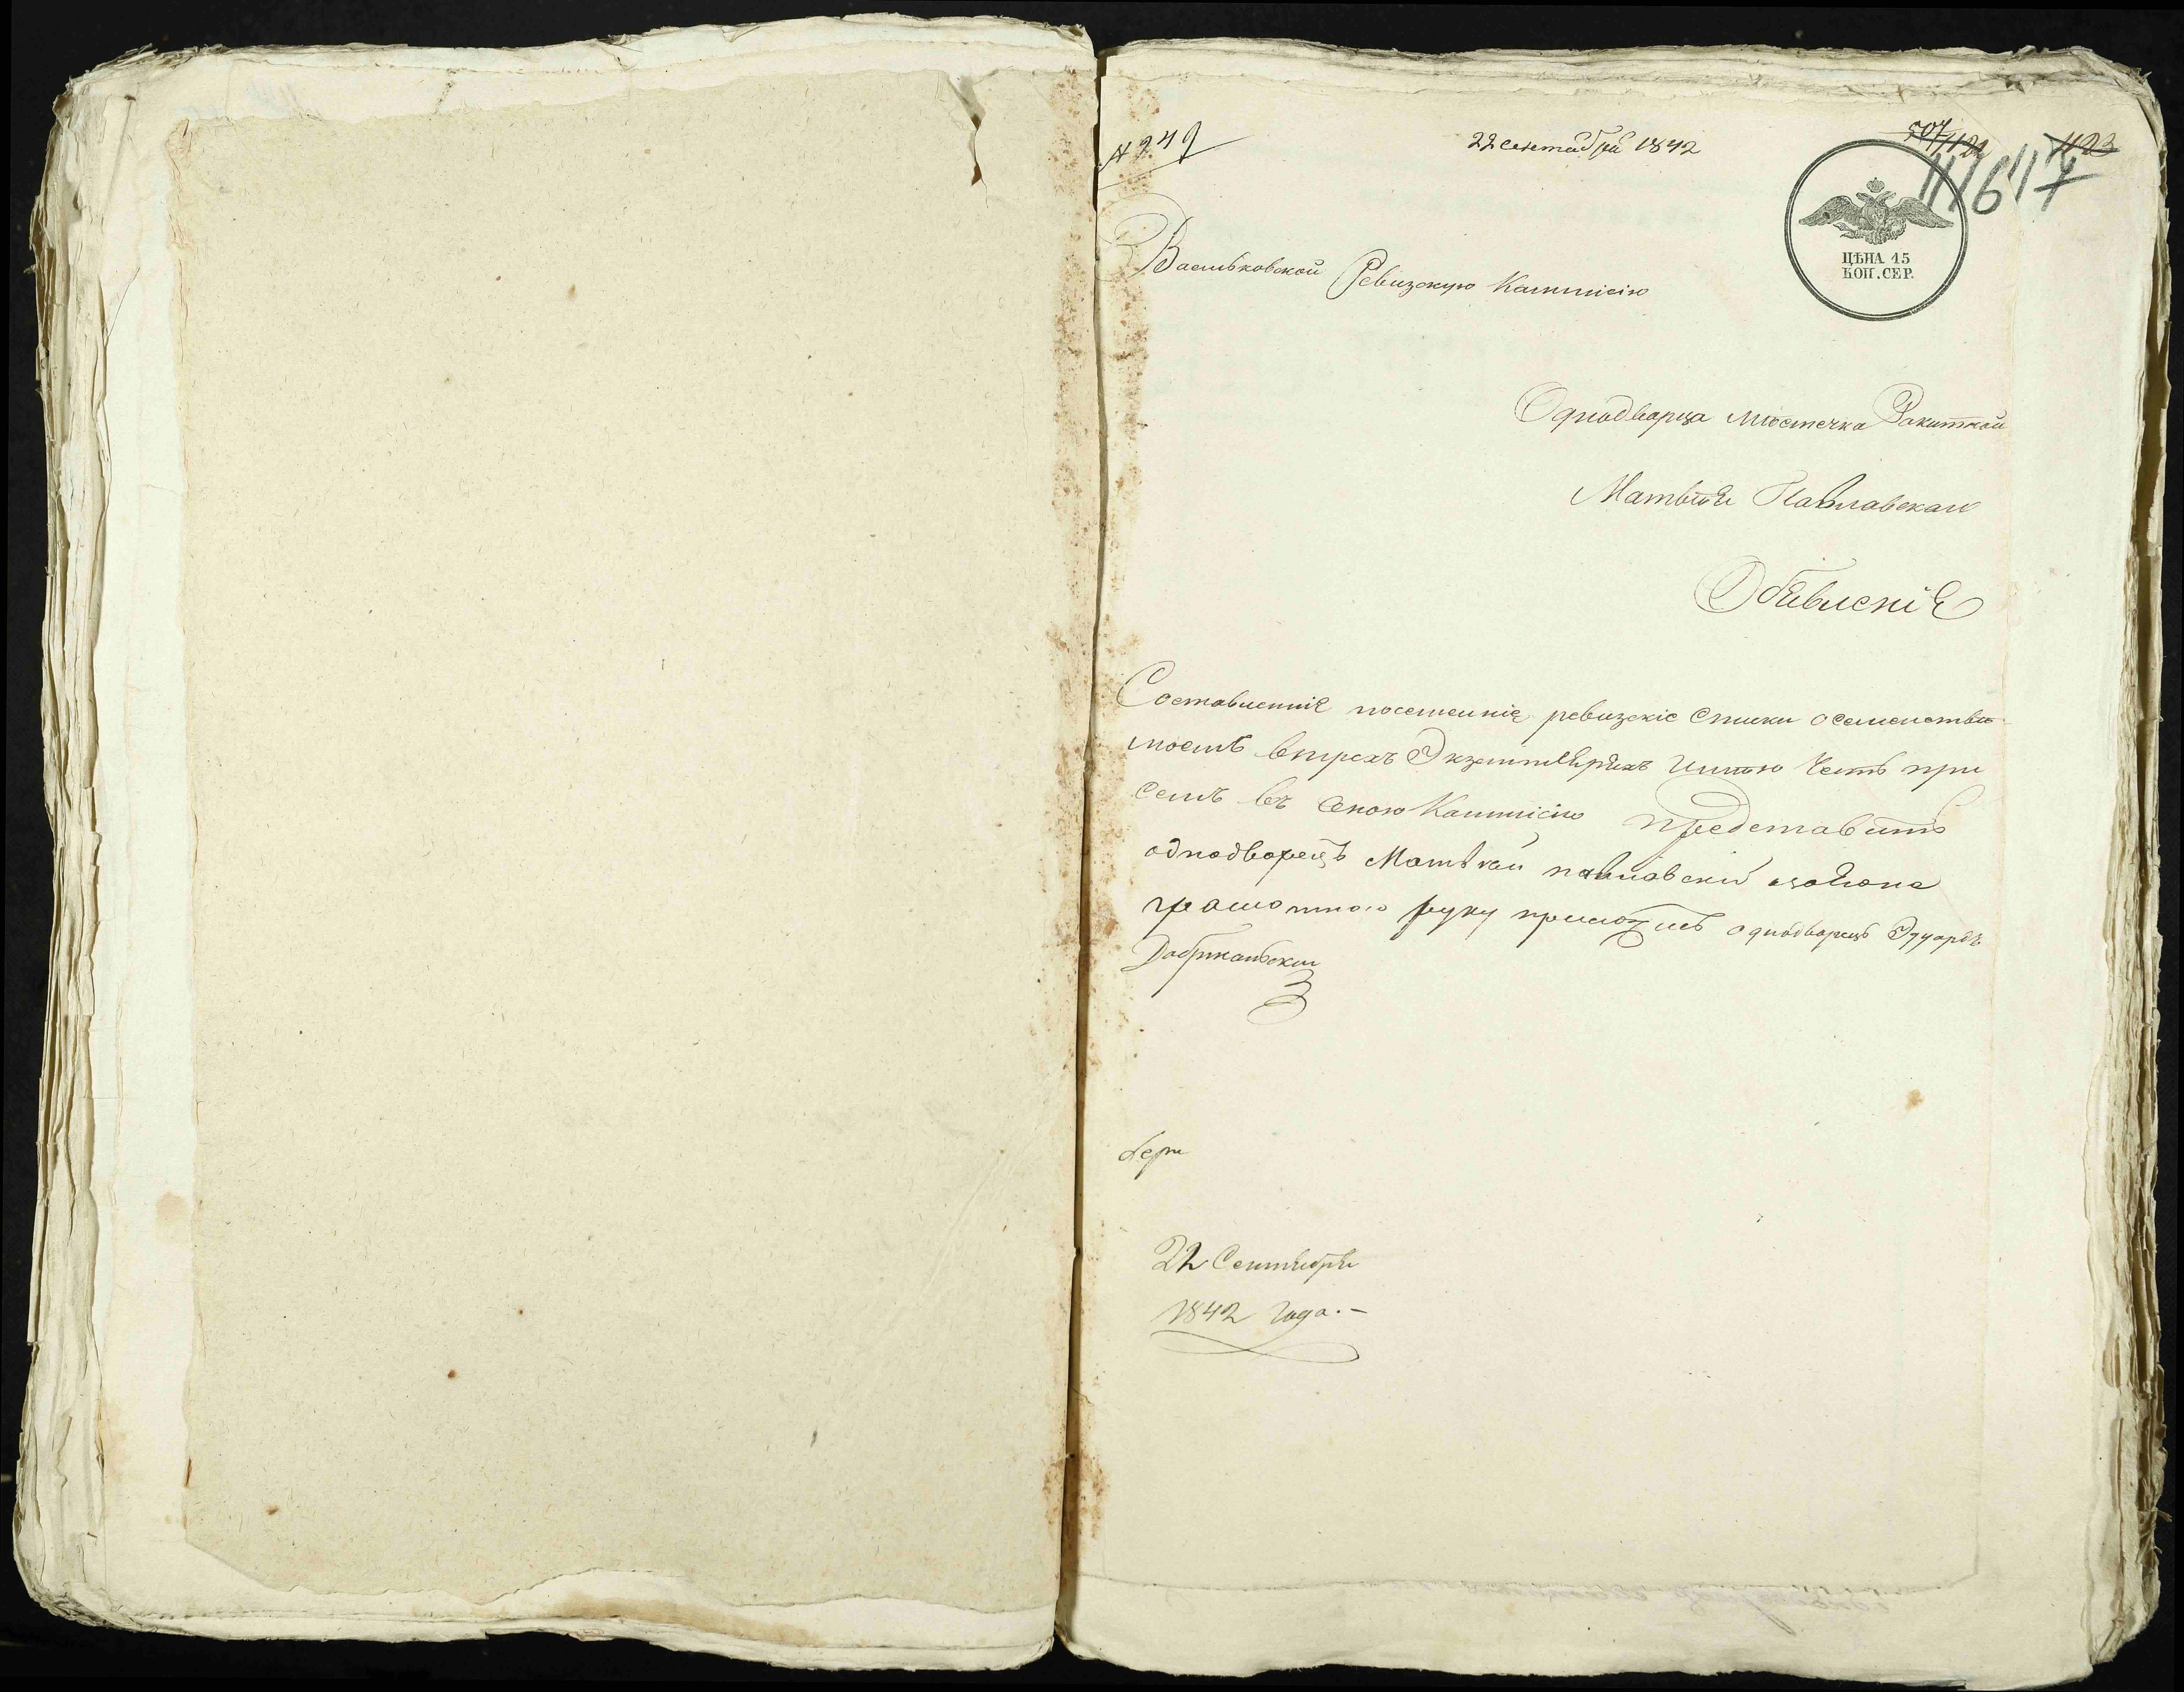 № 249
22 Сентября 1842
507
1122
1123
1116
17
ЦѢНА 15
КОП. СЕР.
Васильковской Ревизскую Коммисію
Однодворца Мѣстечка Ракитной
Матвѣя Павлавскаи
Объявленіе
Составленніе посемейніе ревизскіе Списки осемействѣ
моемъ втрехъ Экземплярахъ Имѣю Честь при
Семъ въ Сеною Коммисію Представить
однодворецъ Матвѣй павлавскій азаНего
грамотного руку приложилъ однодворецъ Эдуардъ
22 Сентября
1842 Года.–